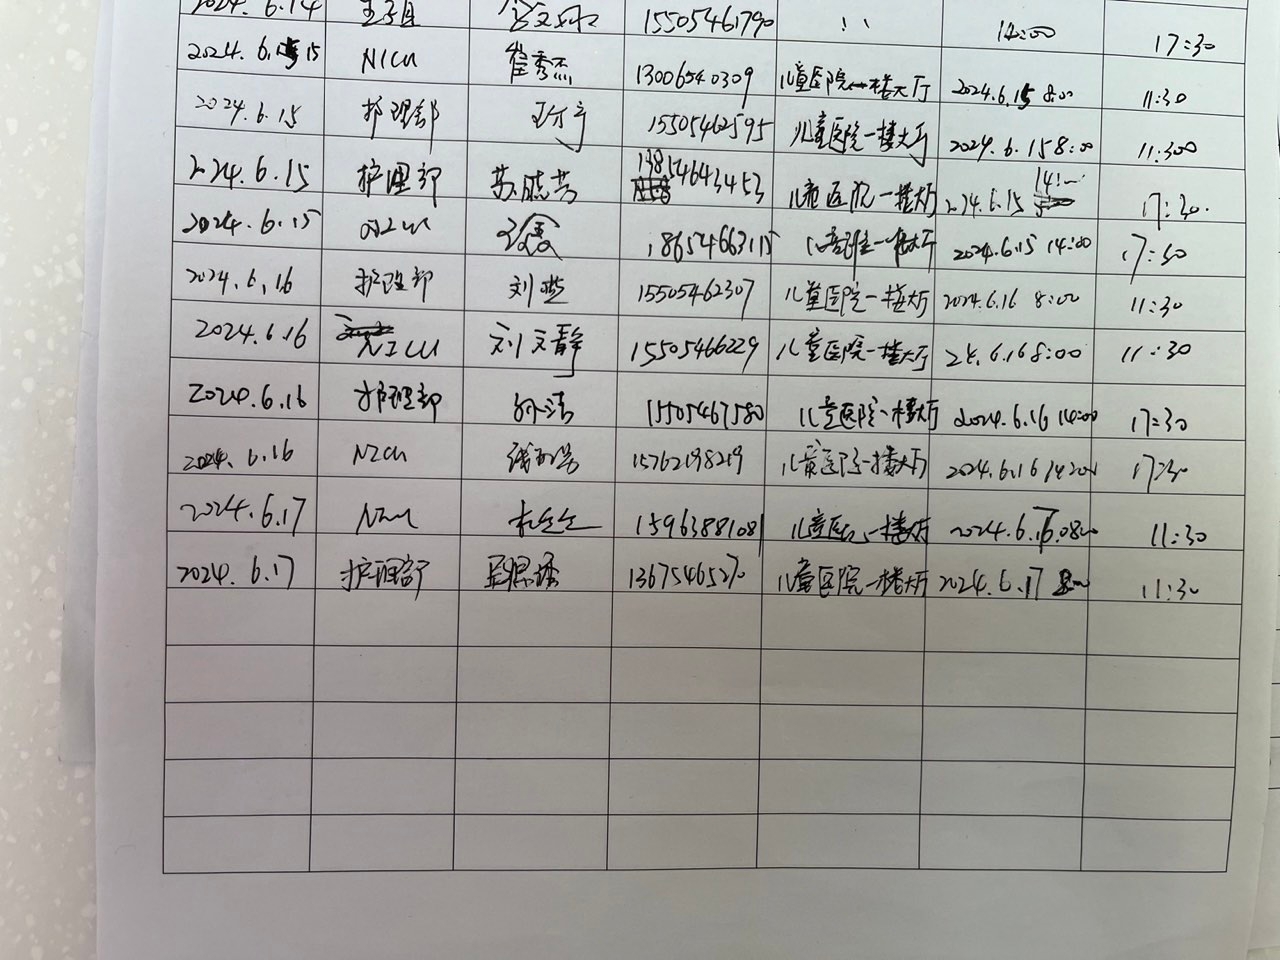 2024.6.14 15505461790 14:00 17:30
2024.6.15 NICU 崔秀杰 13006540309 儿童医院一楼大厅 2024.6.15 8:00 11:30
2024.6.15 护理部 15505462595 儿童医院一楼大厅 2024.6.15 8:00 11:300
2024.6.15 护理部 苏晓芳 13854643453 儿童医院一楼大厅 2024.6.15 14:00 17:30.
2024.6.15 NICU 18654663115 一楼大厅 2024.6.15 14:00 17:30
2024.6.16 护理部 刘 15505462307 儿童医院一楼大厅 2024.6.16 8:00 11:30
2024.6.16 NICU 刘文静 15505466229 儿童医院一楼大厅 24.6.16 8:00 11:30
2024.6.16 护理部 孙洁 15505467580 儿童医院一楼大厅 2024.6.16 14:00 17:30
2024.6.16 NICU 15762198219 儿童医院一楼大厅 2024.6.16 14:00 17:30
2024.6.17 NICU 15963881081 儿童医院一楼大厅 11:30
2024.6.17 护理部 13675465270 儿童医院一楼大厅 2024.6.17 8:00 11:30